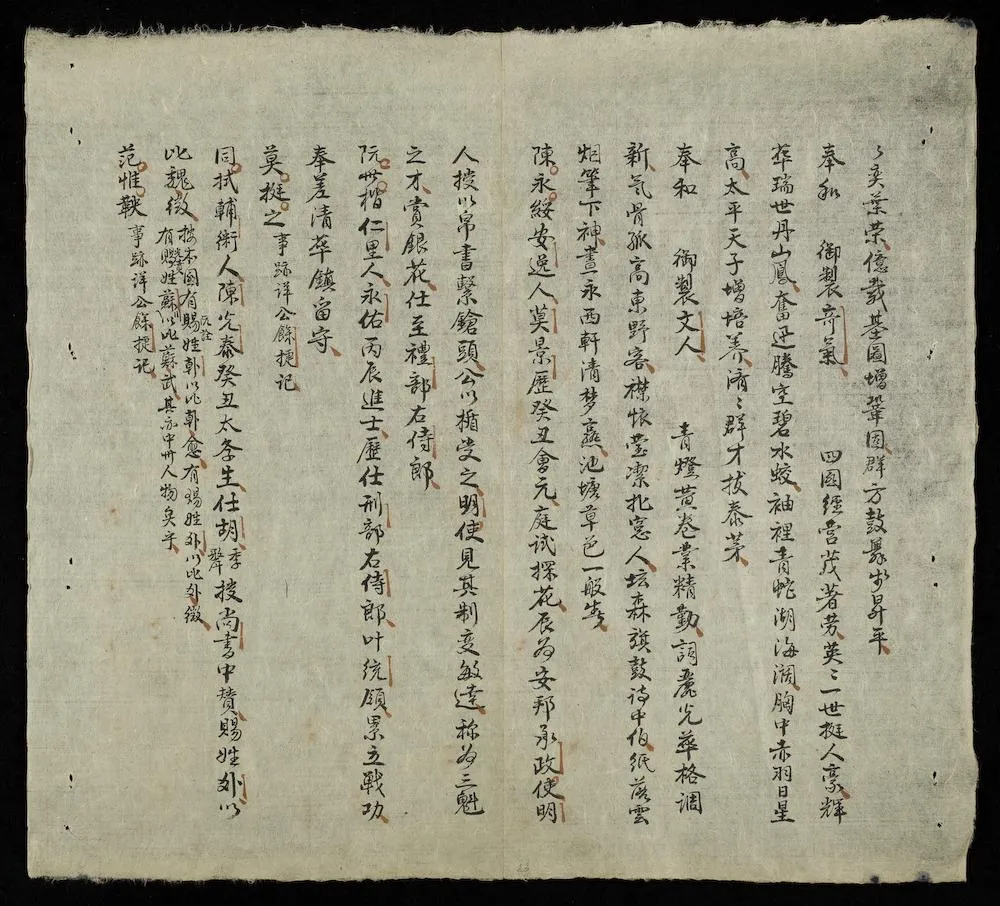 々奕葉荣億載基圖增鞏固群方鼓舞步昇平
奉和　御製奇氣　四圍經营茂著劳英〻一世挺人豪輝
華瑞世丹山鳳奮迅騰空碧水蛟袖裡青蛇湖海濶胸中赤羽日星
高太平天子增培养濟〻群才拔泰茅
奉和　御製文人　青燈黄卷業精勤詞麗光華格調
新氣骨孤高東野客襟怀瑩潔北窓人坛森旗鼓詩中伯紙落雲
烟筆下神晝永西軒清梦熹池塘草色一般春
陳永綏安逸人莫景歷癸丑會元庭試探花辰為安邦承政使明
人授以帛書繫鎗頭公以楯受之明使見其制变敏達称為三魁
之才賞銀花仕至禮部右侍郎
阮世楷仁里人永佑丙辰進士歷仕刑部右侍郎叶統領累立戰功
奉差清華鎮留守
莫挺之事跡詳公餘捷记
同拭輔衛人陳光泰癸丑太孝生仕胡季犛授尚書中賛賜姓外以
比魏徵按本国有賜姓韓以比韓愈有賜姓外以比外徵
有賜姓蘇以比蘇武其亦中州人物矣乎
范惟䩑事跡详公餘捷记